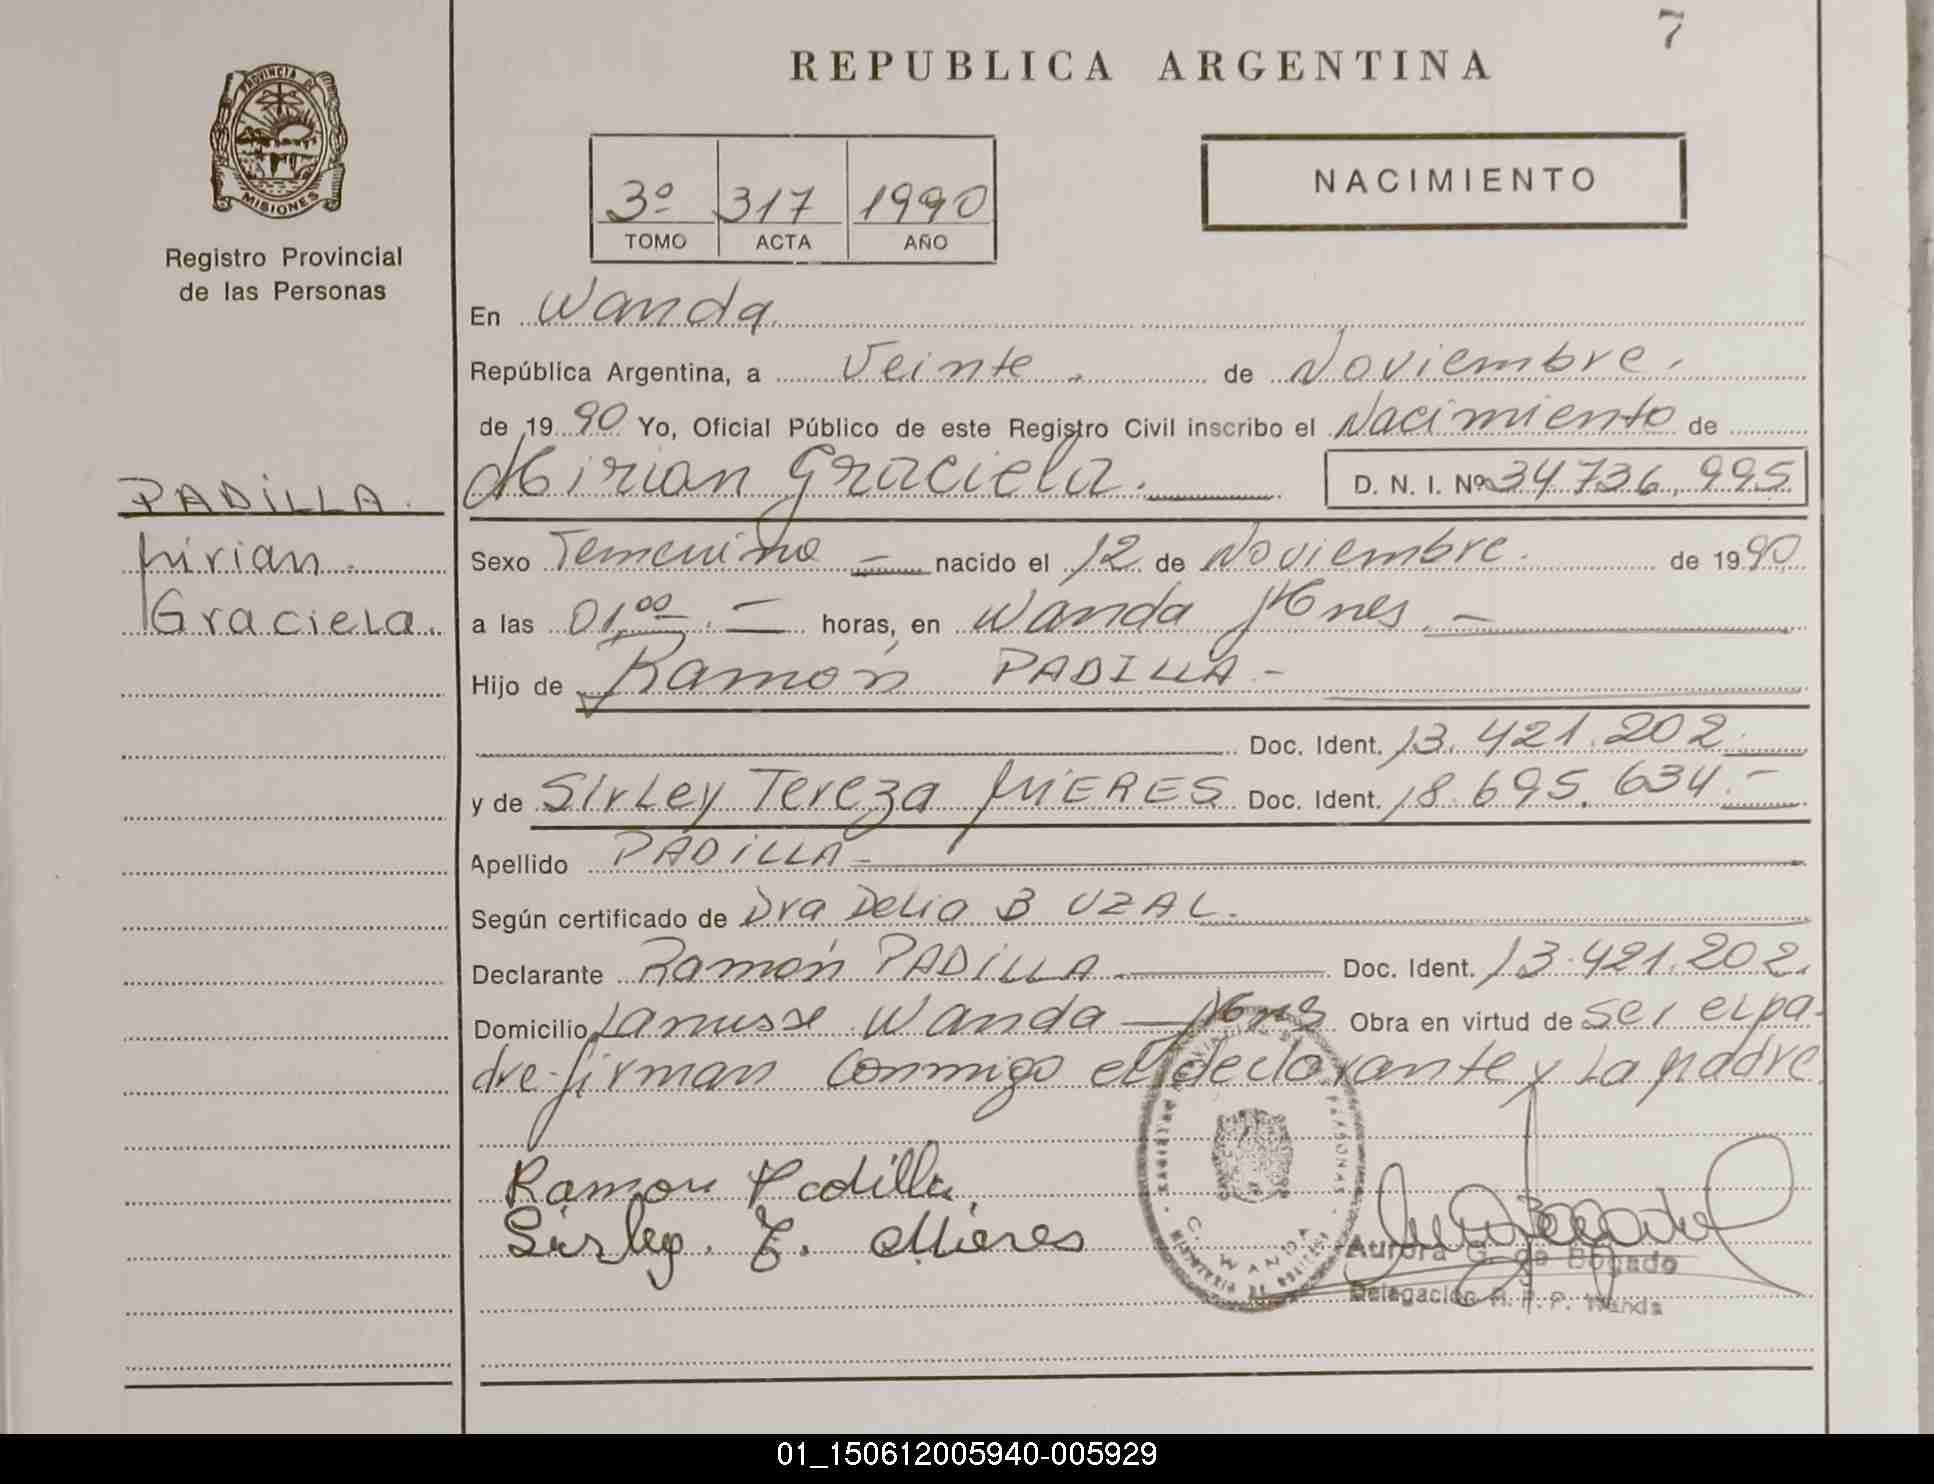 7
REPUBLICA ARGENTINA
PROVINCIA DE
MISIONES
Registro Provincial
de las Personas
3º 317 1990
TOMO ACTA AÑO
NACIMIENTO
En Wanda
República Argentina, a Veinte. de Noviembre.
de 1990 Yo, Oficial Público de este Registro Civil inscribo el Nacimiento de
PADILLA. Mirian Graciela. D. N. I. Nº 34736.995
Mirian. Sexo Femenino — nacido el 12 de Noviembre. de 1990
Graciela. a las 01.00 — horas, en Wanda Mnes. —
Hijo de Ramón PADILLA -
Doc. Ident. 13.421.202
y de Sirley Tereza MIERES Doc. Ident. 18.695.634.-
Apellido PADILLA-
Según certificado de Dra Delia B UZAL.
Declarante Ramón PADILLA Doc. Ident. 13.421.202.
Domicilio Lanusse Wanda — Mns Obra en virtud de ser el pa-
dre-firman conmigo el declarante y la madre.
Ramon Padilla
Sirley. T. Mieres
C. WANDA
Aurora G. de Bogado
Delegación R. P. P. Wanda
01_150612005940-005929